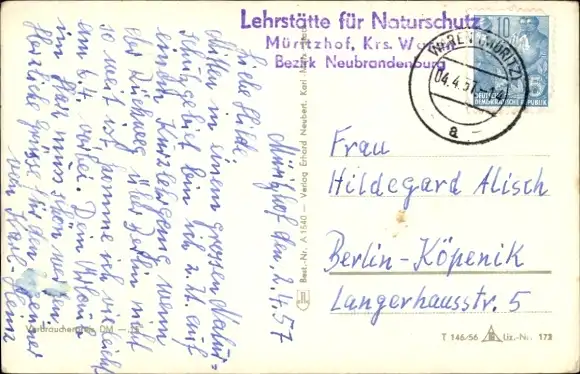 Lehrstätte für Naturschutz
Müritzhof, Krs. Wa
Bezirk Neubrandenburg
WAREN (MÜRITZ)
04.4.57
a
10
DEUTSCHE
DEMOKRATISCHE REPUBLIK
Müritzhof den, 2.4.57
Liebe Hilde
Mitten in einem großen Natur=
schutzgebiet bin ich z. Zt. auf
einem Kurzlehrgang wenn
der Rückweg über Berlin nicht
so weit ist komme ich vielleicht
am 6.4. vorbei. Dein Urlaub
im Harz muss schön werden
Herzliche Grüße
von Karl-Heinz
Frau
Hildegard Alisch
Berlin-Köpenik
Langerhausstr. 5
Best.-Nr. A 1540 — Verlag Erhard Neubert, Karl
Verbraucherpreis DM
T 146/56 Liz.-Nr. 173